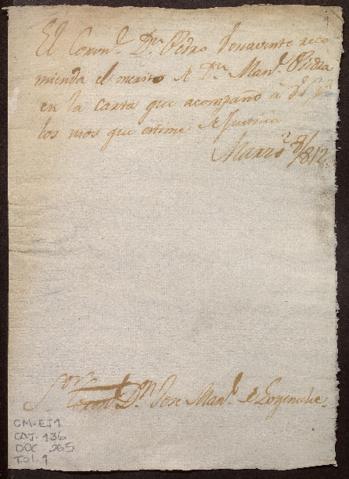 El Coron.l D.n Pedro Benavente reco
mienda el merito de D.n Man.l Obli
en la Carta que acompaño à
los usos que estime de Justicia
Marzo 8/812
S.or D.n Jose Man.l de Goyeneche.
CM-EJ1
CAJ. 136
DOC 265
FOL. 1